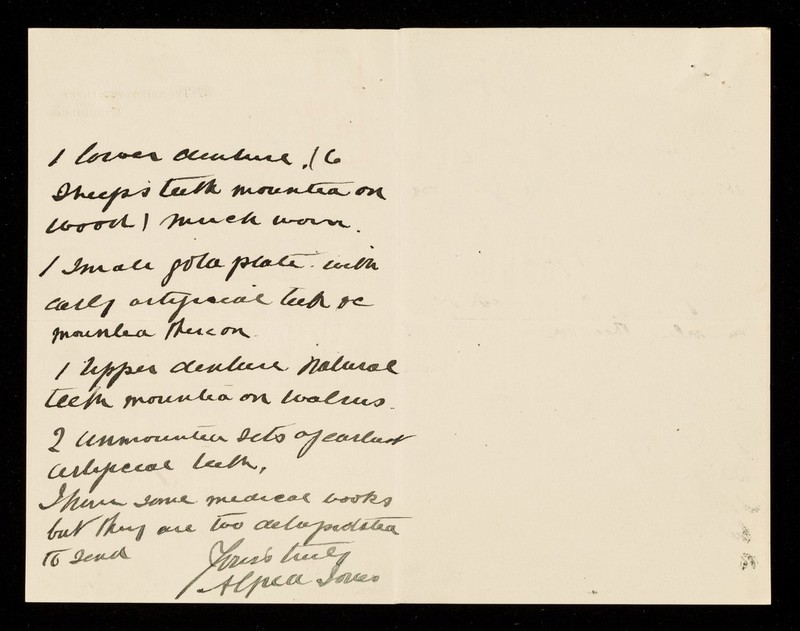 1 lower denture. (6
Sheep's teeth mounted on
wood) much worn.
1 Small gold plate with
early artificial teeth &c
mounted thereon
1 Upper denture natural
teeth mounted on walrus.
2 unmounted sets of earliest
artificial teeth.
I have some medical books
but they are too delapidated
to send
Yours truly
Alfred Jones